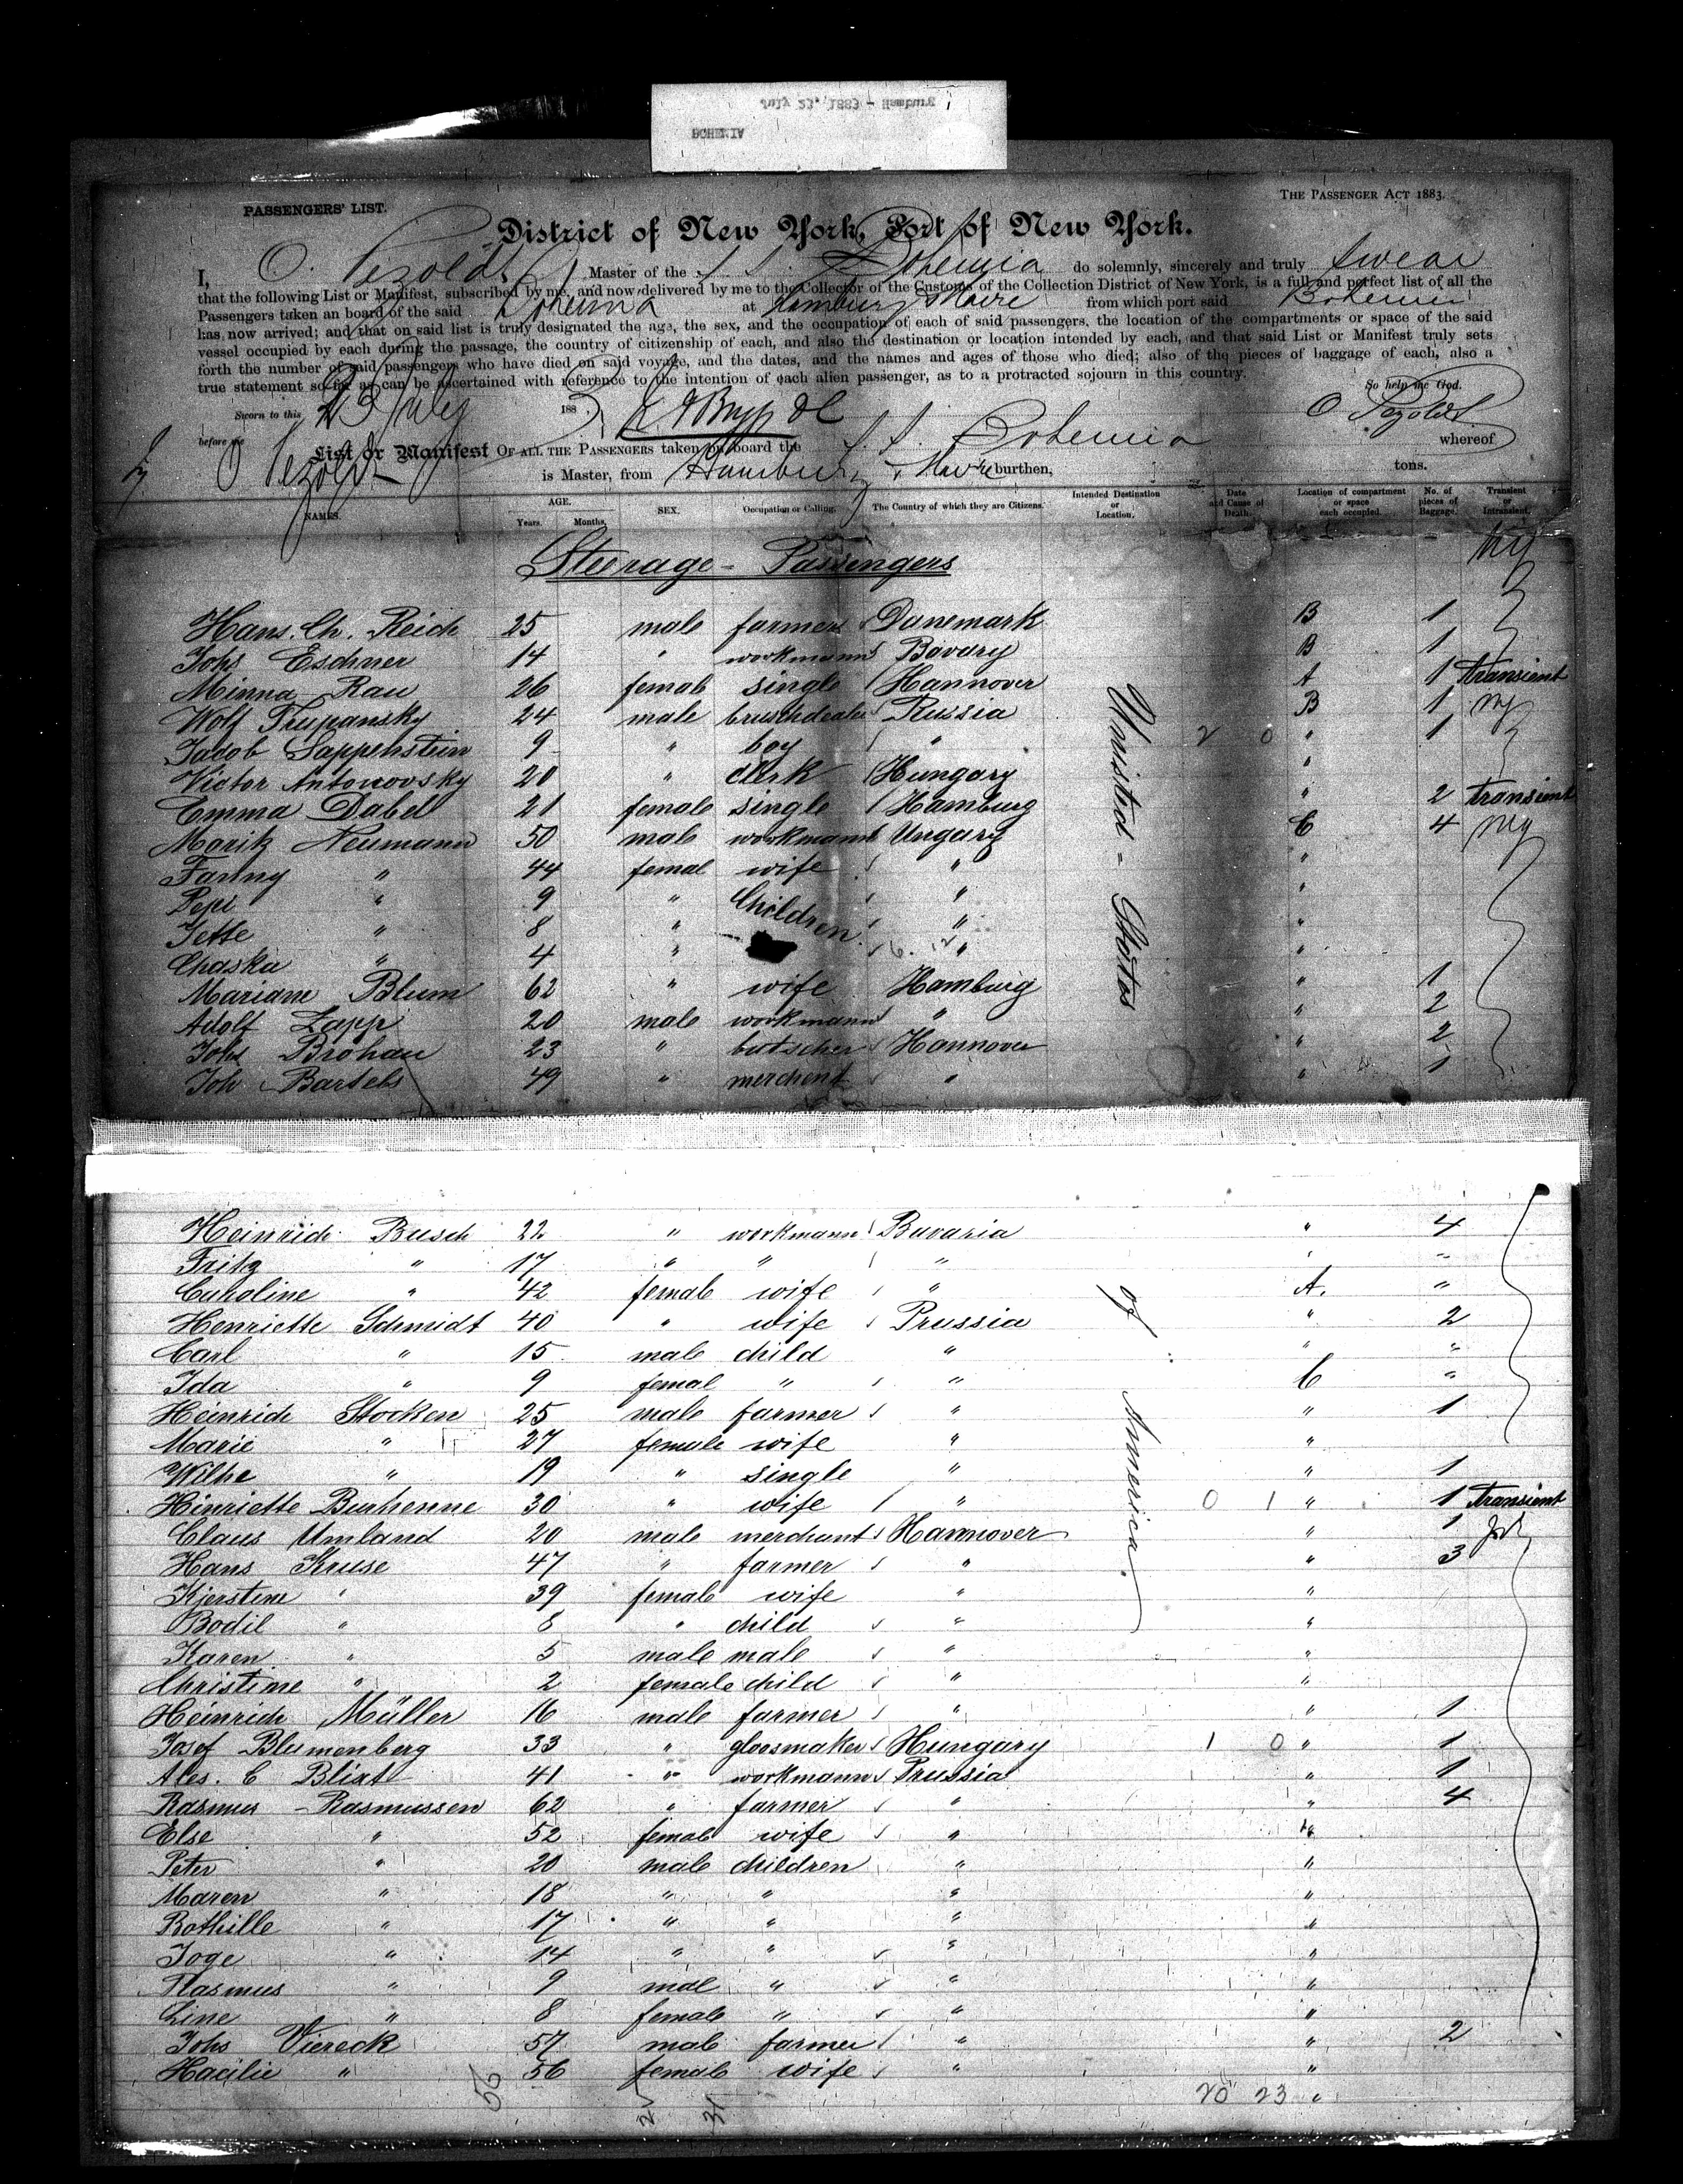 July 23, 1883 - Hamburg
BOHEMIA
PASSENGERS' LIST.
THE PASSENGER ACT 1883.
District of New York, Port of New York.
I, O. Pezoldt Master of the S. S. Bohemia do solemnly, sincerely and truly swear
that the following List or Manifest, subscribed by me, and now delivered by me to the Collector of the Customs of the Collection District of New York, is a full and perfect list of all the
Passengers taken on board of the said Bohemia at Hamburg Havre from which port said Bohemia
has now arrived; and that on said list is truly designated the age, the sex, and the occupation of each of said passengers, the location of the compartments or space of the said
vessel occupied by each during the passage, the country of citizenship of each, and also the destination or location intended by each, and that said List or Manifest truly sets
forth the number of said passengers who have died on said voyage, and the dates, and the names and ages of those who died; also of the pieces of baggage of each, also a
true statement so far as can be ascertained with reference to the intention of each alien passenger, as to a protracted sojourn in this country.
So help me God.
Sworn to this 23 July 1883 O. Pezoldt
before me
List or Manifest OF ALL THE PASSENGERS taken on board the S. S. Bohemia whereof
O Pezoldt is Master, from Hamburg & Havre burthen, tons.
NAMES. AGE. Years. Months. SEX. Occupation or Calling. The Country of which they are Citizens. Intended Destination or Location. Date and Cause of Death. Location of compartment or space each occupied. No. of pieces of Baggage. Transient or Intransient.
Steerage - Passengers
Hans. Ch. Reich 25 male farmer Danemark B 1
Johs Eschner 14 " workmann Bavary B 1
Minna Rau 26 female single Hannover A 1 transient
Wolf Trupansky 24 male bruschdealer Russia B 1
Jacob Sappenstein 9 " boy " 2 0 " 1
Victor Antonovsky 20 " clerk Hungary "
Emma Dabel 21 female single Hamburg " 2 transient
Moritz Neumann 50 male workmann Ungary C 4
Fanny " 44 femal wife " "
Pepi " 9 " Children " "
Jette " 8 " " "
Chaska " 4 " " "
Mariane Blum 62 " wife Hamburg " 1
Adolf Zapp 20 male workmann " " 2
Johs Brohan 23 " butscher Hannover " 2
Joh Bartels 49 " merchent " " 1
United - Stotos
Heinrich Busch 22 " workmann Bavaria " 4
Fritz " 17 " " " " "
Caroline " 42 female wife " A. "
Henriette Schmidt 40 " wife Prussia " 2
Carl " 15 male child " " "
Ida " 9 femal " " C "
Heinrich Stocken 25 male farmer " " 1
Marie " 27 female wife " "
Wilhe " 19 " single " " 1
Hinriette Burhenne 30 " wife " 0 1 " 1 transient
Claus Umland 20 male merchant Hannover " 1
Hans Kruse 47 " farmer " " 3
Kjerstine " 39 female wife " "
Bodil " 8 " child " "
Karen " 5 male male " "
Christine " 2 female child " "
Heinrich Müller 16 male farmer " " 1
Josef Blumenberg 33 " gloosmaker Hungary 1 0 " 1
Ales. C Blixt 41 " workmann Prussia " 1
Rasmus - Rasmussen 62 " farmer " " 4
Else " 52 female wife " "
Peter " 20 male children " "
Maren " 18 " " " "
Bothille " 17 " " " "
Toge " 14 " " " "
Rasmus " 9 male " " "
Line " 8 female " " "
Johs Viereck 57 male farmer " " 2
Hacilie " 56 female wife " "
of America.
56 31 20 23 "